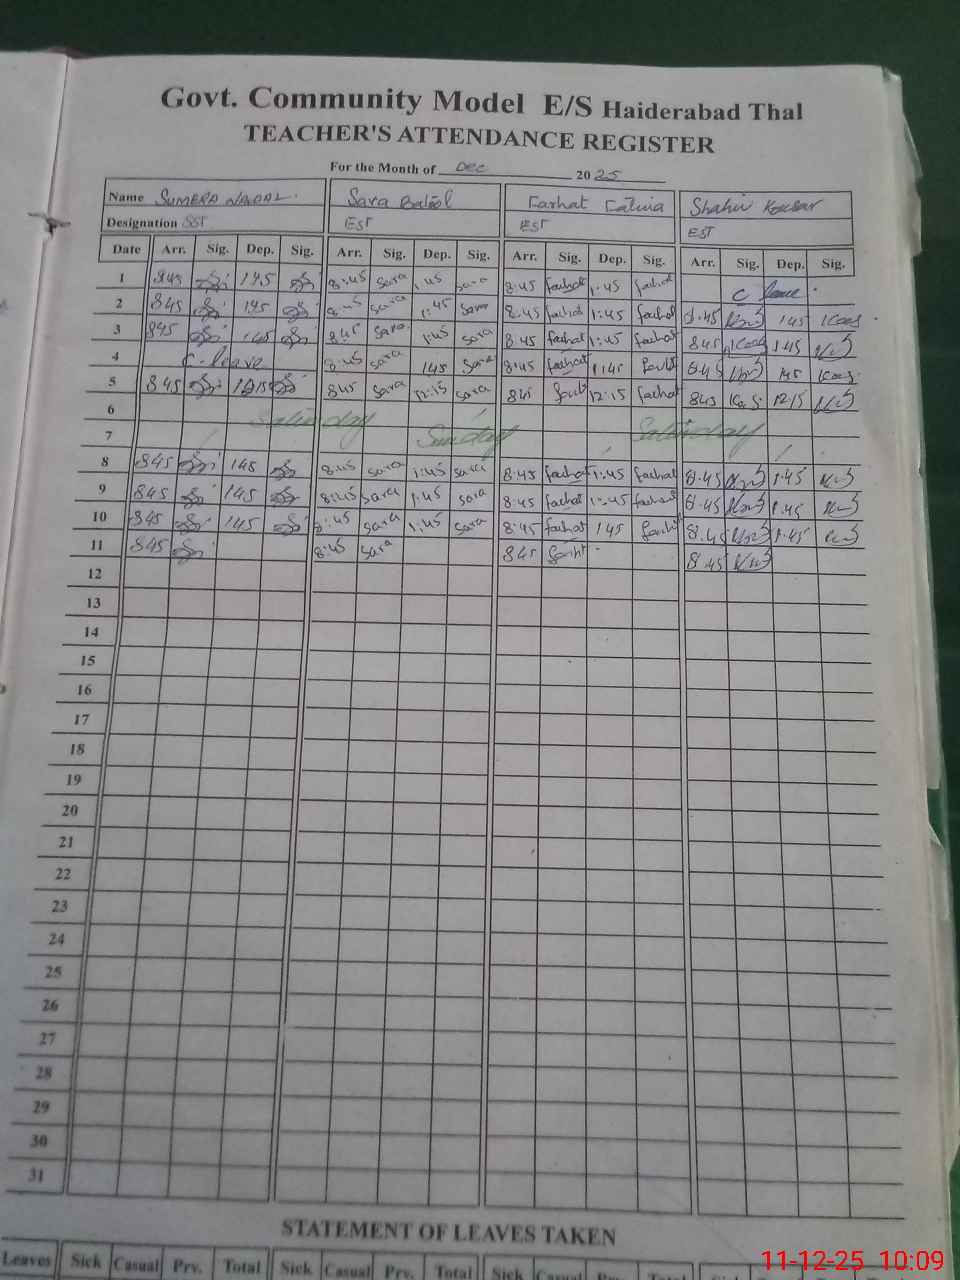 Govt. Community Model E/S Haiderabad Thal
TEACHER'S ATTENDANCE REGISTER
For the Month of Dec 2025
Name SUMERA Sara Batool Farhat Fatima Shahin Kousar
Designation SST EST EST EST
Date Arr. Sig. Dep. Sig. Arr. Sig. Dep. Sig. Arr. Sig. Dep. Sig. Arr. Sig. Dep. Sig.
1 845 145 8:45 Sara 1:45 Sara 8:45 farhat 1:45 farhat C leave
2 845 145 8:45 Sara 1:45 Sara 8:45 farhat 1:45 farhat 8:45 145
3 845 145 8:45 Sara 1:45 Sara 8:45 farhat 1:45 farhat 845 1:45
4 C-leave 8:45 Sara 145 Sara 8:45 farhat 1:45 8:45 145
5 845 1215 845 Sara 12:15 Sara 845 12:15 farhat 845 12:15
6 Saturday Saturday
7 Sunday
8 845 145 8:45 Sara 1:45 Sara 8:45 farhat 1:45 farhat 8:45 1:45
9 845 145 8:45 Sara 1:45 Sara 8:45 farhat 1:45 farhat 8:45 1:45
10 845 145 8:45 Sara 1:45 Sara 8:45 farhat 145 farhat 8:45 1:45
11 845 8:45 Sara 845 8:45
12
13
14
15
16
17
18
19
20
21
22
23
24
25
26
27
28
29
30
31
STATEMENT OF LEAVES TAKEN
Leaves Sick Casual Prv. Total Sick Casual Prv. Total Sick Casual Prv. Total
11-12-25 10:09